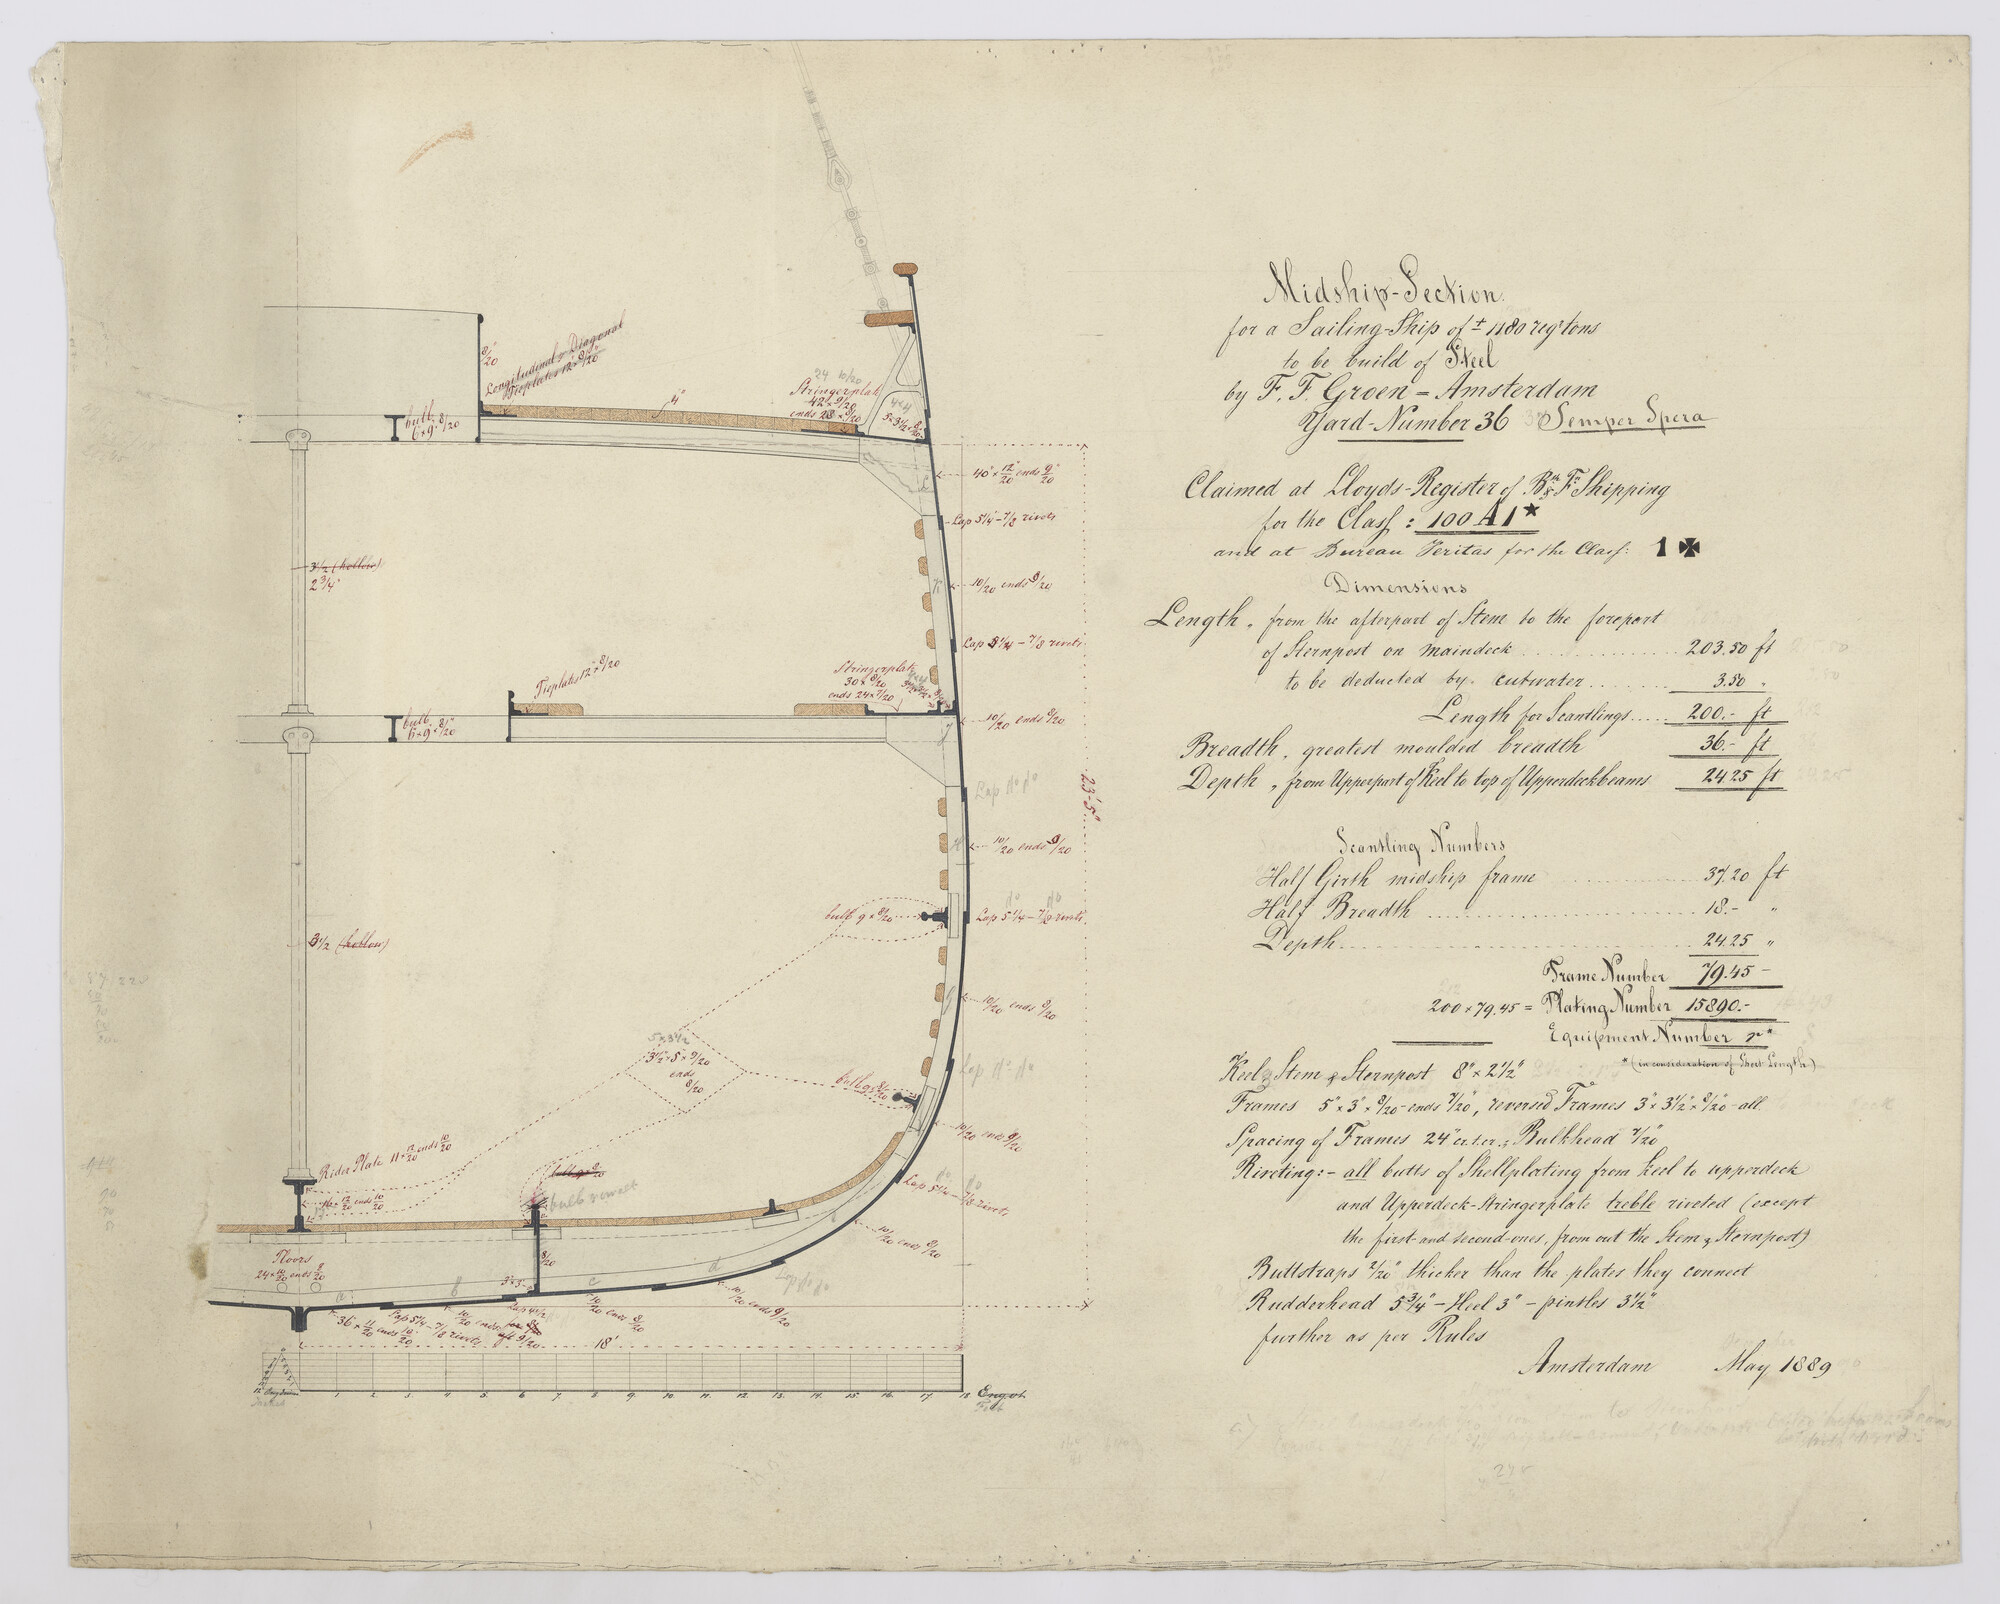 Midship-Section.
for a Sailing-Ship of ± 1180 regrtons
to be build of Steel
by F. F. Groen = Amsterdam
Yard-Number 36 Semper Spera
Claimed at Lloyds-Register of Bh & Fn Shipping
for the Class : 100 A 1*
and at Bureau Veritas for the Class: 1 ✠
Dimensions
Length, from the afterpart of Stem to the forepart
of Sternpost on maindeck 203.50 ft
to be deducted by cutwater 3.50 "
Length for Scantlings 200.- ft
Breadth, greatest moulded breadth 36.- ft
Depth, from Upperpart of Keel to top of Upperdeckbeams 24.25 ft
Scantling Numbers
Half Girth midship frame 37.20 ft
Half Breadth 18.- "
Depth 24.25 "
Frame Number 79.45 -
200 × 79.45 = Plating Number 15890.-
Equipment Number
*(in consideration of Short Length)
Keel, Stem & Sternpost 8" × 2 1/2"
Frames 5" × 3" × 8/20 - ends 7/20", reversed Frames 3" × 3 1/2" × 8/20" - all.
Spacing of Frames 24" cr.t.cr.; Bulkhead 7/20"
Riveting:- all butts of Shellplating from keel to upperdeck
and Upperdeck-Stringerplate treble riveted (except
the first- and second-ones, from out the Stem & Sternpost)
Buttstraps 2/20" thicker than the plates they connect
Rudderhead 5 3/4" - Heel 3" - pintles 3 1/2"
further as per Rules
Amsterdam May 1889
8/20"
Longitudinal & Diagonal
Tieplates 12" × 8/20"
4"
24 10/20
Stringerplate
42 × 9/20
ends 28 × 8/20
4×4
bulb
6 × 9 × 8/20
40" × 12/20" ends 9/20
Lap 5 1/4" - 7/8 rivets
3 1/2 (hollow)
2 3/4"
10/20 ends 8/20
Lap 5 1/4 - 7/8 rivets
Tieplates 12" × 8/20
Stringerplate
30 × 8/20
ends 24 × 7/20
bulb
6 × 9 × 8/20
10/20 ends 8/20
23'-5"
Lap do do
10/20 ends 9/20
3 1/2 (hollow)
bulb 9 × 8/20
Lap 5 1/4 - 7/8 rivets
10/20 ends 8/20
5 × 3 1/2
3 1/2 × 5 × 9/20
ends
8/20
bulb 9 × 8/20
Lap do do
10/20 ends 9/20
Rider Plate 11 × 12/20 ends 10/20
16 × 12/20 ends 10/20
bulb
Lap 5 1/4 - 7/8 rivets
10/20 ends 8/20
Floors
24 × 10/20 ends 8/20
8/20
36 × 11/20 ends 10/20
Lap 5 1/4 - 7/8 rivets
10/20 ends
10/20 ends 8/20
10/20 ends 9/20
Lap do do
18'
1 2 3 4 5 6 7 8 9 10 11 12 13 14 15 16 17 18
Feet